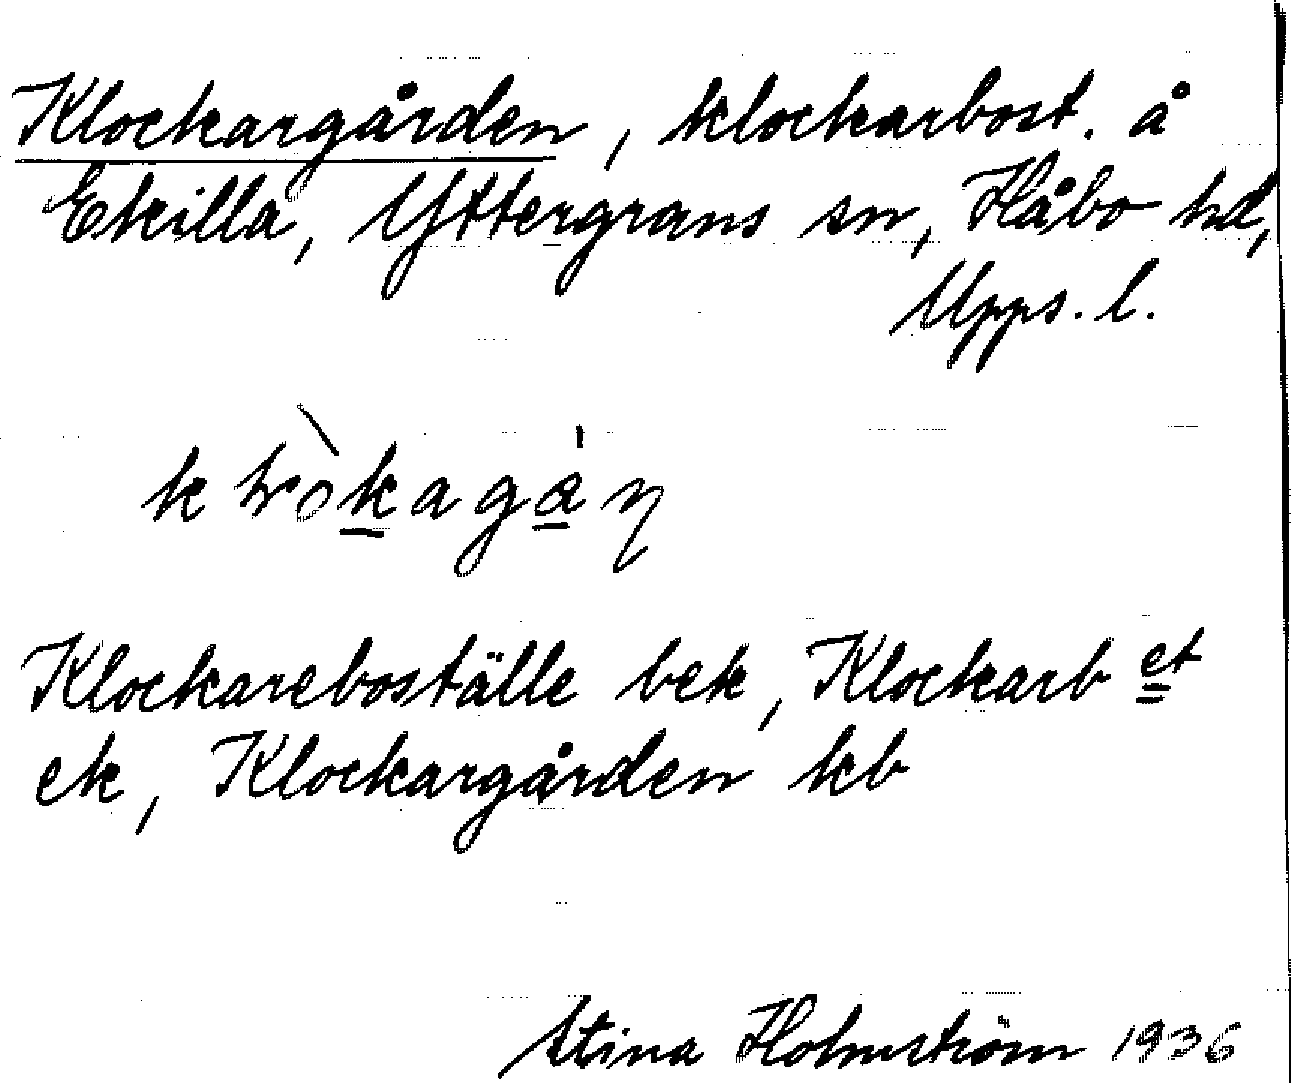 Klockargården, klockarbost. å
Ekilla, Yttergrans sn, Håbo hd,
Upps. l.
Klockareboställe bek, Klockarb et
ek, Klockargården kb
Stina Holmström 1936